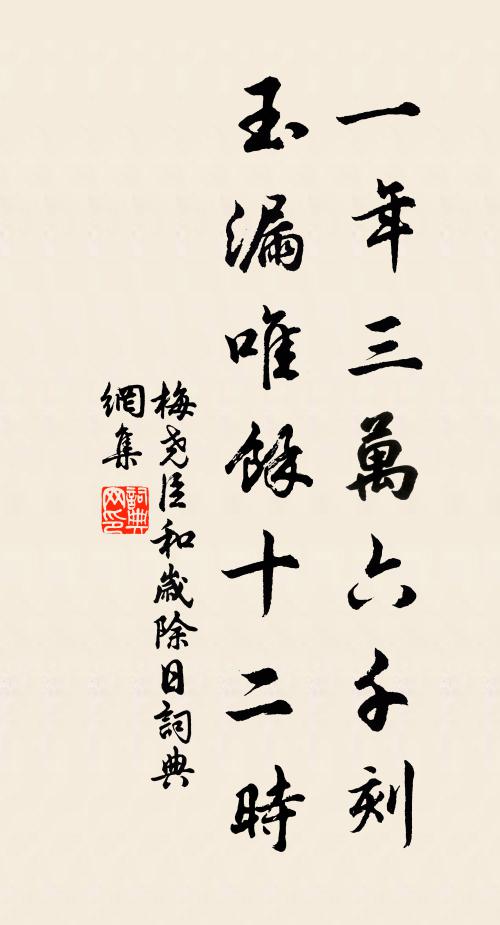 一年三萬六千刻
玉漏唯餘十二時
梅尧臣和歲除日詞典
網集
詞典
网印